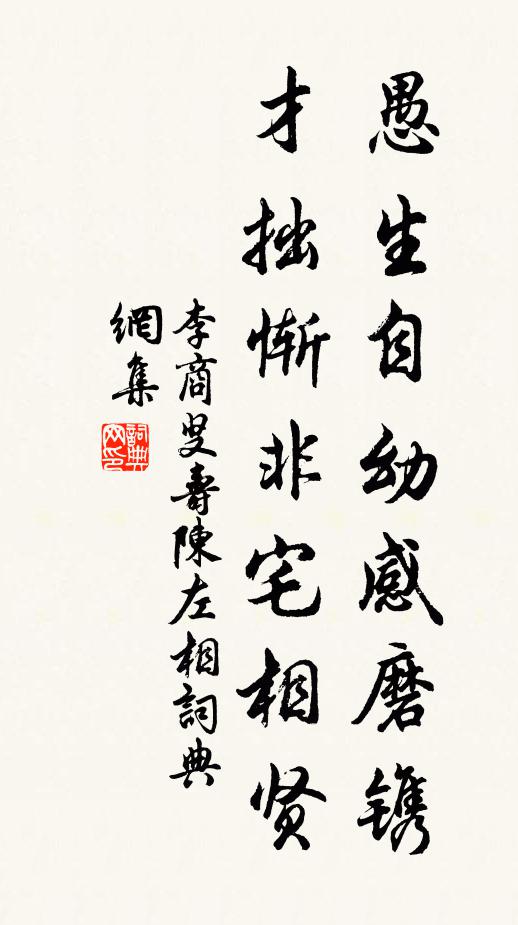 愚生自幼感磨镌
才拙惭非宅相贤
李商叟壽陳左相詞典
網集
詞典
网印